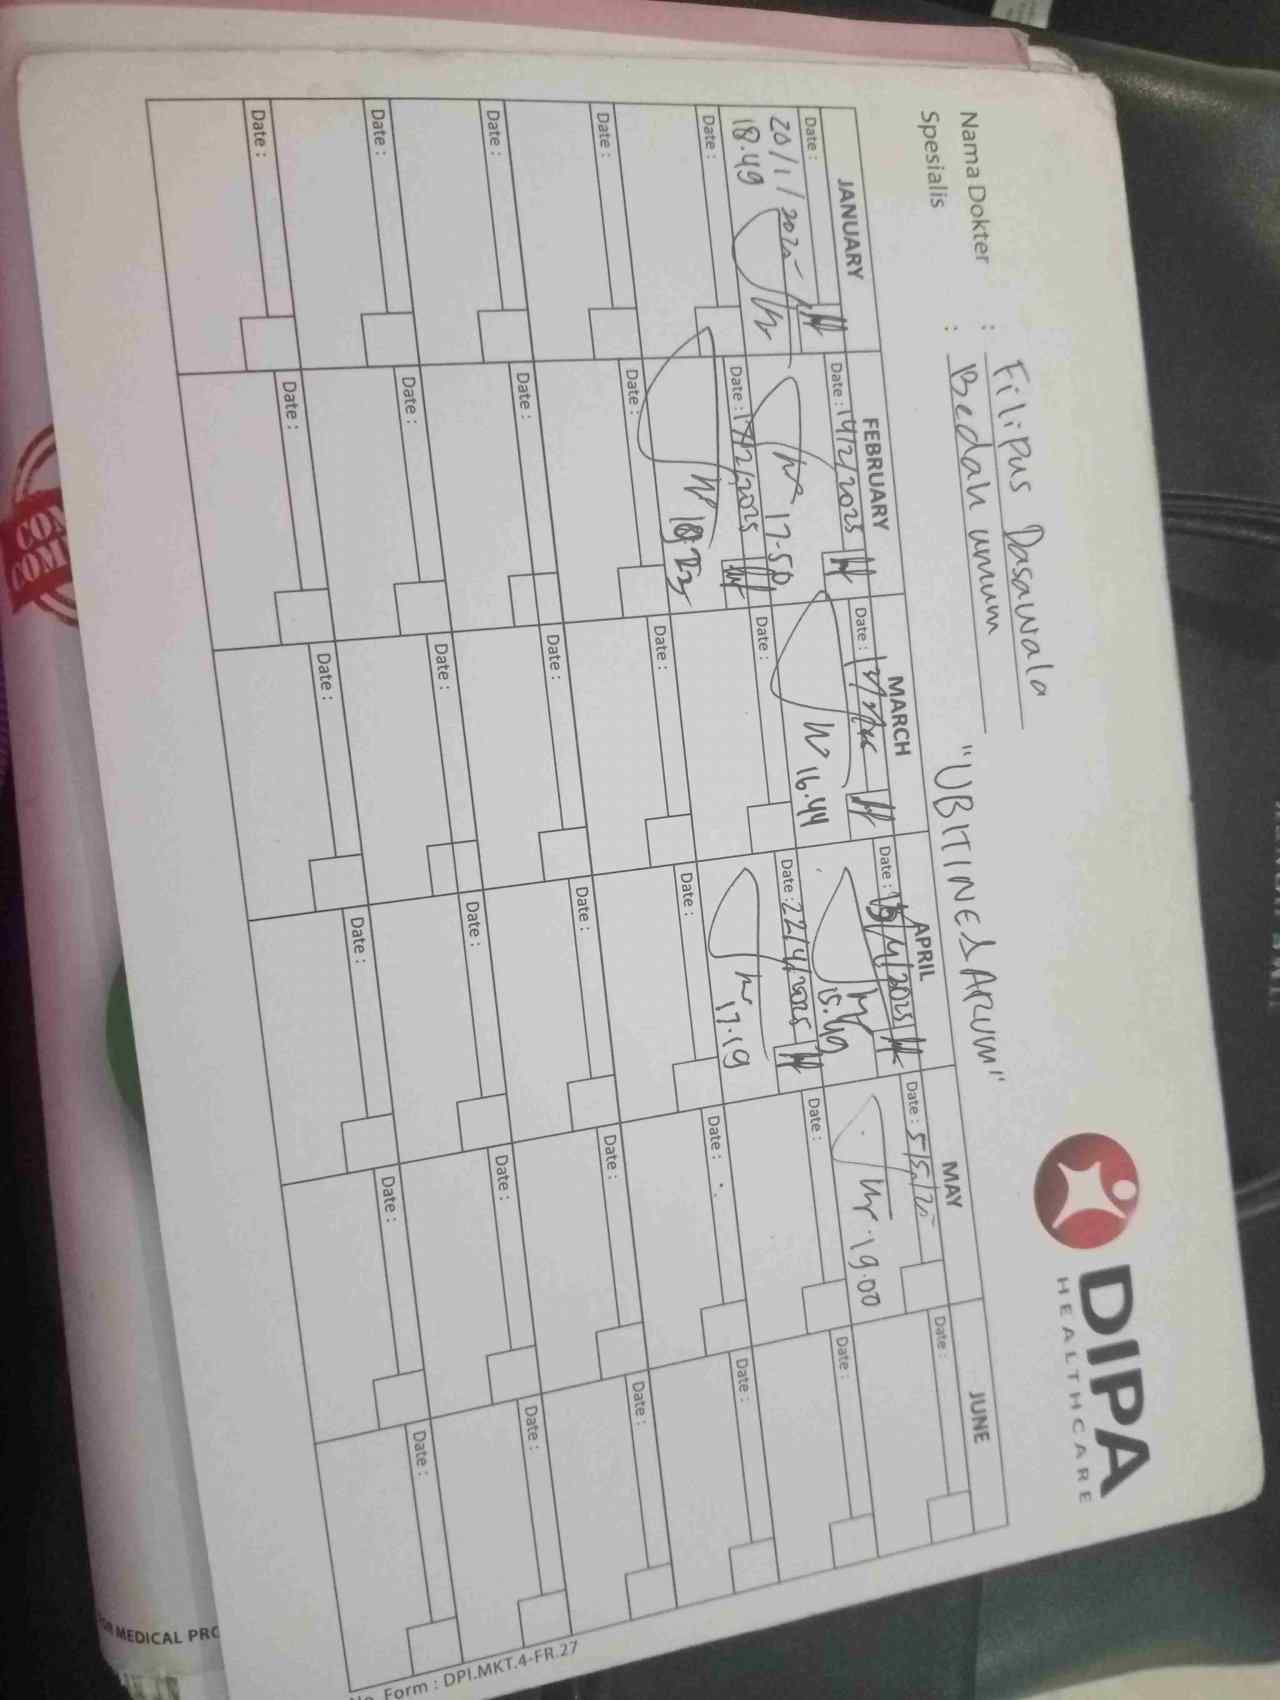 DIPA
HEALTHCARE
Nama Dokter : Filipus Dasawala
Spesialis : Bedah umum "UBITINESARUM"
JANUARY FEBRUARY MARCH APRIL MAY JUNE
Date : Date : 14/2/2025 Date : Date : 15/4/2025 Date : 5/5/25 Date :
20/1/2025 17.50 16.44 15.49 19.00
18.49
Date : Date : 17/2/2025 Date : Date : 22/4/2025 Date : Date :
17.19
Date : Date : Date : Date : Date : Date :
Date : Date : Date : Date : Date : Date :
Date : Date : Date : Date : Date : Date :
Date : Date : Date : Date : Date : Date :
Form : DPI.MKT.4-FR.27
CON
COM
MEDICAL PRO